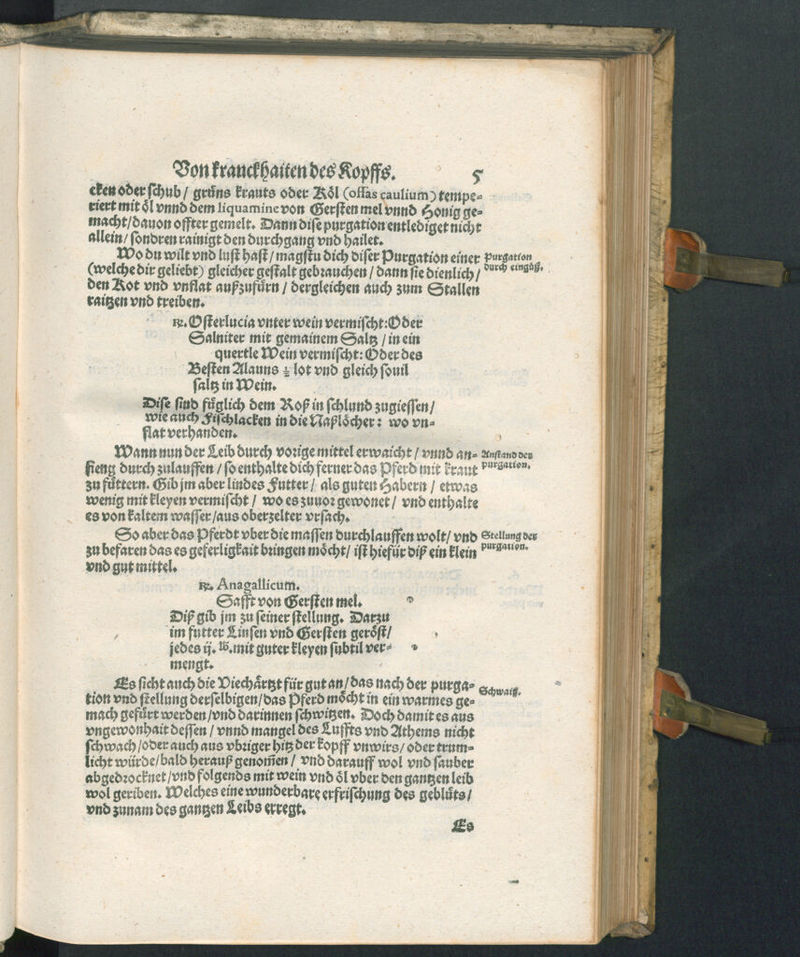 Von kranckhaiten des Kopffs. 5
cken oder schub / grüns krauts oder Köl (offas caulium) tempe-
riert mit öl vnnd dem liquamine von Gersten mel vnnd Honig ge-
macht/dauon offter gemelt. Dann dise purgation entlediget nicht
allein/ sondren rainigt den durchgang vnd hailet.
Wo du wilt vnd lust hast/ magstu dich diser Purgation einer
(welche dir geliebt) gleicher gestalt gebrauchen / dann sie dienlich/
den Kot vnd vnflat außzufürn / dergleichen auch zum Stallen
raitzen vnd treiben.
Purgation
durch eingüß.
℞. Osterlucia vnter wein vermischt: Oder
Salniter mit gemainem Saltz / in ein
quertle Wein vermischt: Oder des
Besten Alauns ½ lot vnd gleich souil
saltz in Wein.
Dise sind füglich dem Roß in schlund zugiessen/
wie auch Fischlacken in die Naßlöcher: wo vn-
flat verhanden.
Wann nun der Leib durch vorige mittel erwaicht / vnnd an-
fieng durch zulauffen / so enthalte dich ferner das Pferd mit kraut
zu füttern. Gib jm aber lindes Futter / als guten Habern / etwas
wenig mit kleyen vermischt / wo es zuuor gewonet / vnd enthalte
es von kaltem wasser/aus oberzelter vrsach.
Anstand der
purgation.
So aber das Pferdt vber die massen durchlauffen wolt/ vnd
zu befaren das es geferligkait bringen möcht/ ist hiefür diß ein klein
vnd gut mittel.
Stellung der
purgation.
℞. Anagallicum.
Safft von Gersten mel.
Diß gib jm zu seiner stellung. Darzu
im futter Linsen vnd Gersten geröst/
jedes ij. ℔. mit guter kleyen subtil ver-
mengt.
Es sicht auch die Viechärtzt für gut an/das nach der purga-
tion vnd stellung derselbigen/das Pferd möcht in ein warmes ge-
mach gefürt werden/vnd darinnen schwitzen. Doch damit es aus
vngewonhait dessen / vnnd mangel des Luffts vnd Athems nicht
schwach/oder auch aus vbriger hitz der kopff vnwirs/ oder trum-
licht würde/bald herauß genom̃en / vnd darauff wol vnd sauber
abgedrocknet/vnd folgends mit wein vnd öl vber den gantzen leib
wol geriben. Welches eine wunderbare erfrischung des geblüts/
vnd zunam des gantzen Leibs erregt.
Schwaiß.
Es